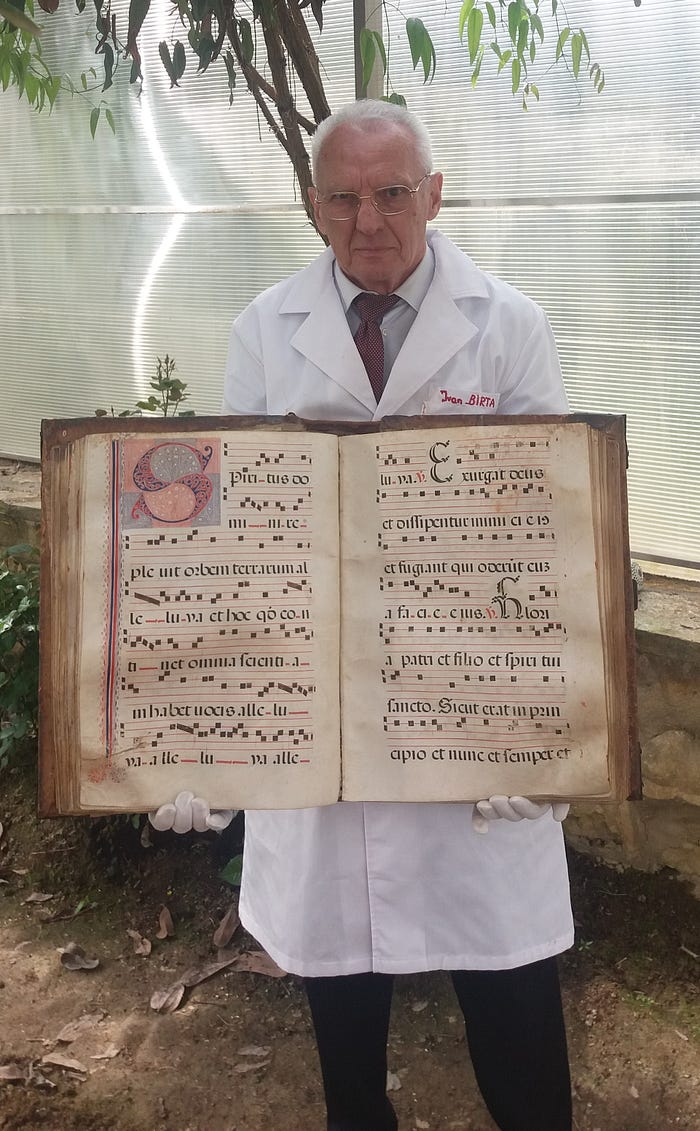 Ivan BİRTA
SPiri-tus do
mi-ni-re-
ple uit orbem terrarum al
le-lu-ya et hoc qð co-n
ti-net omnia scienti-a
m habet uocis alle-lu-
ya-a lle-lu-ya alle-
lu-ya. V. Exurgat deus
et dissipentur inimi ci e is
et fugiant qui oderūt euz
a fa-ci-e-e ius. V. Glori
a patri et filio et spiri tui
sancto. Sicut erat in prin
cipio et nunc et semper et